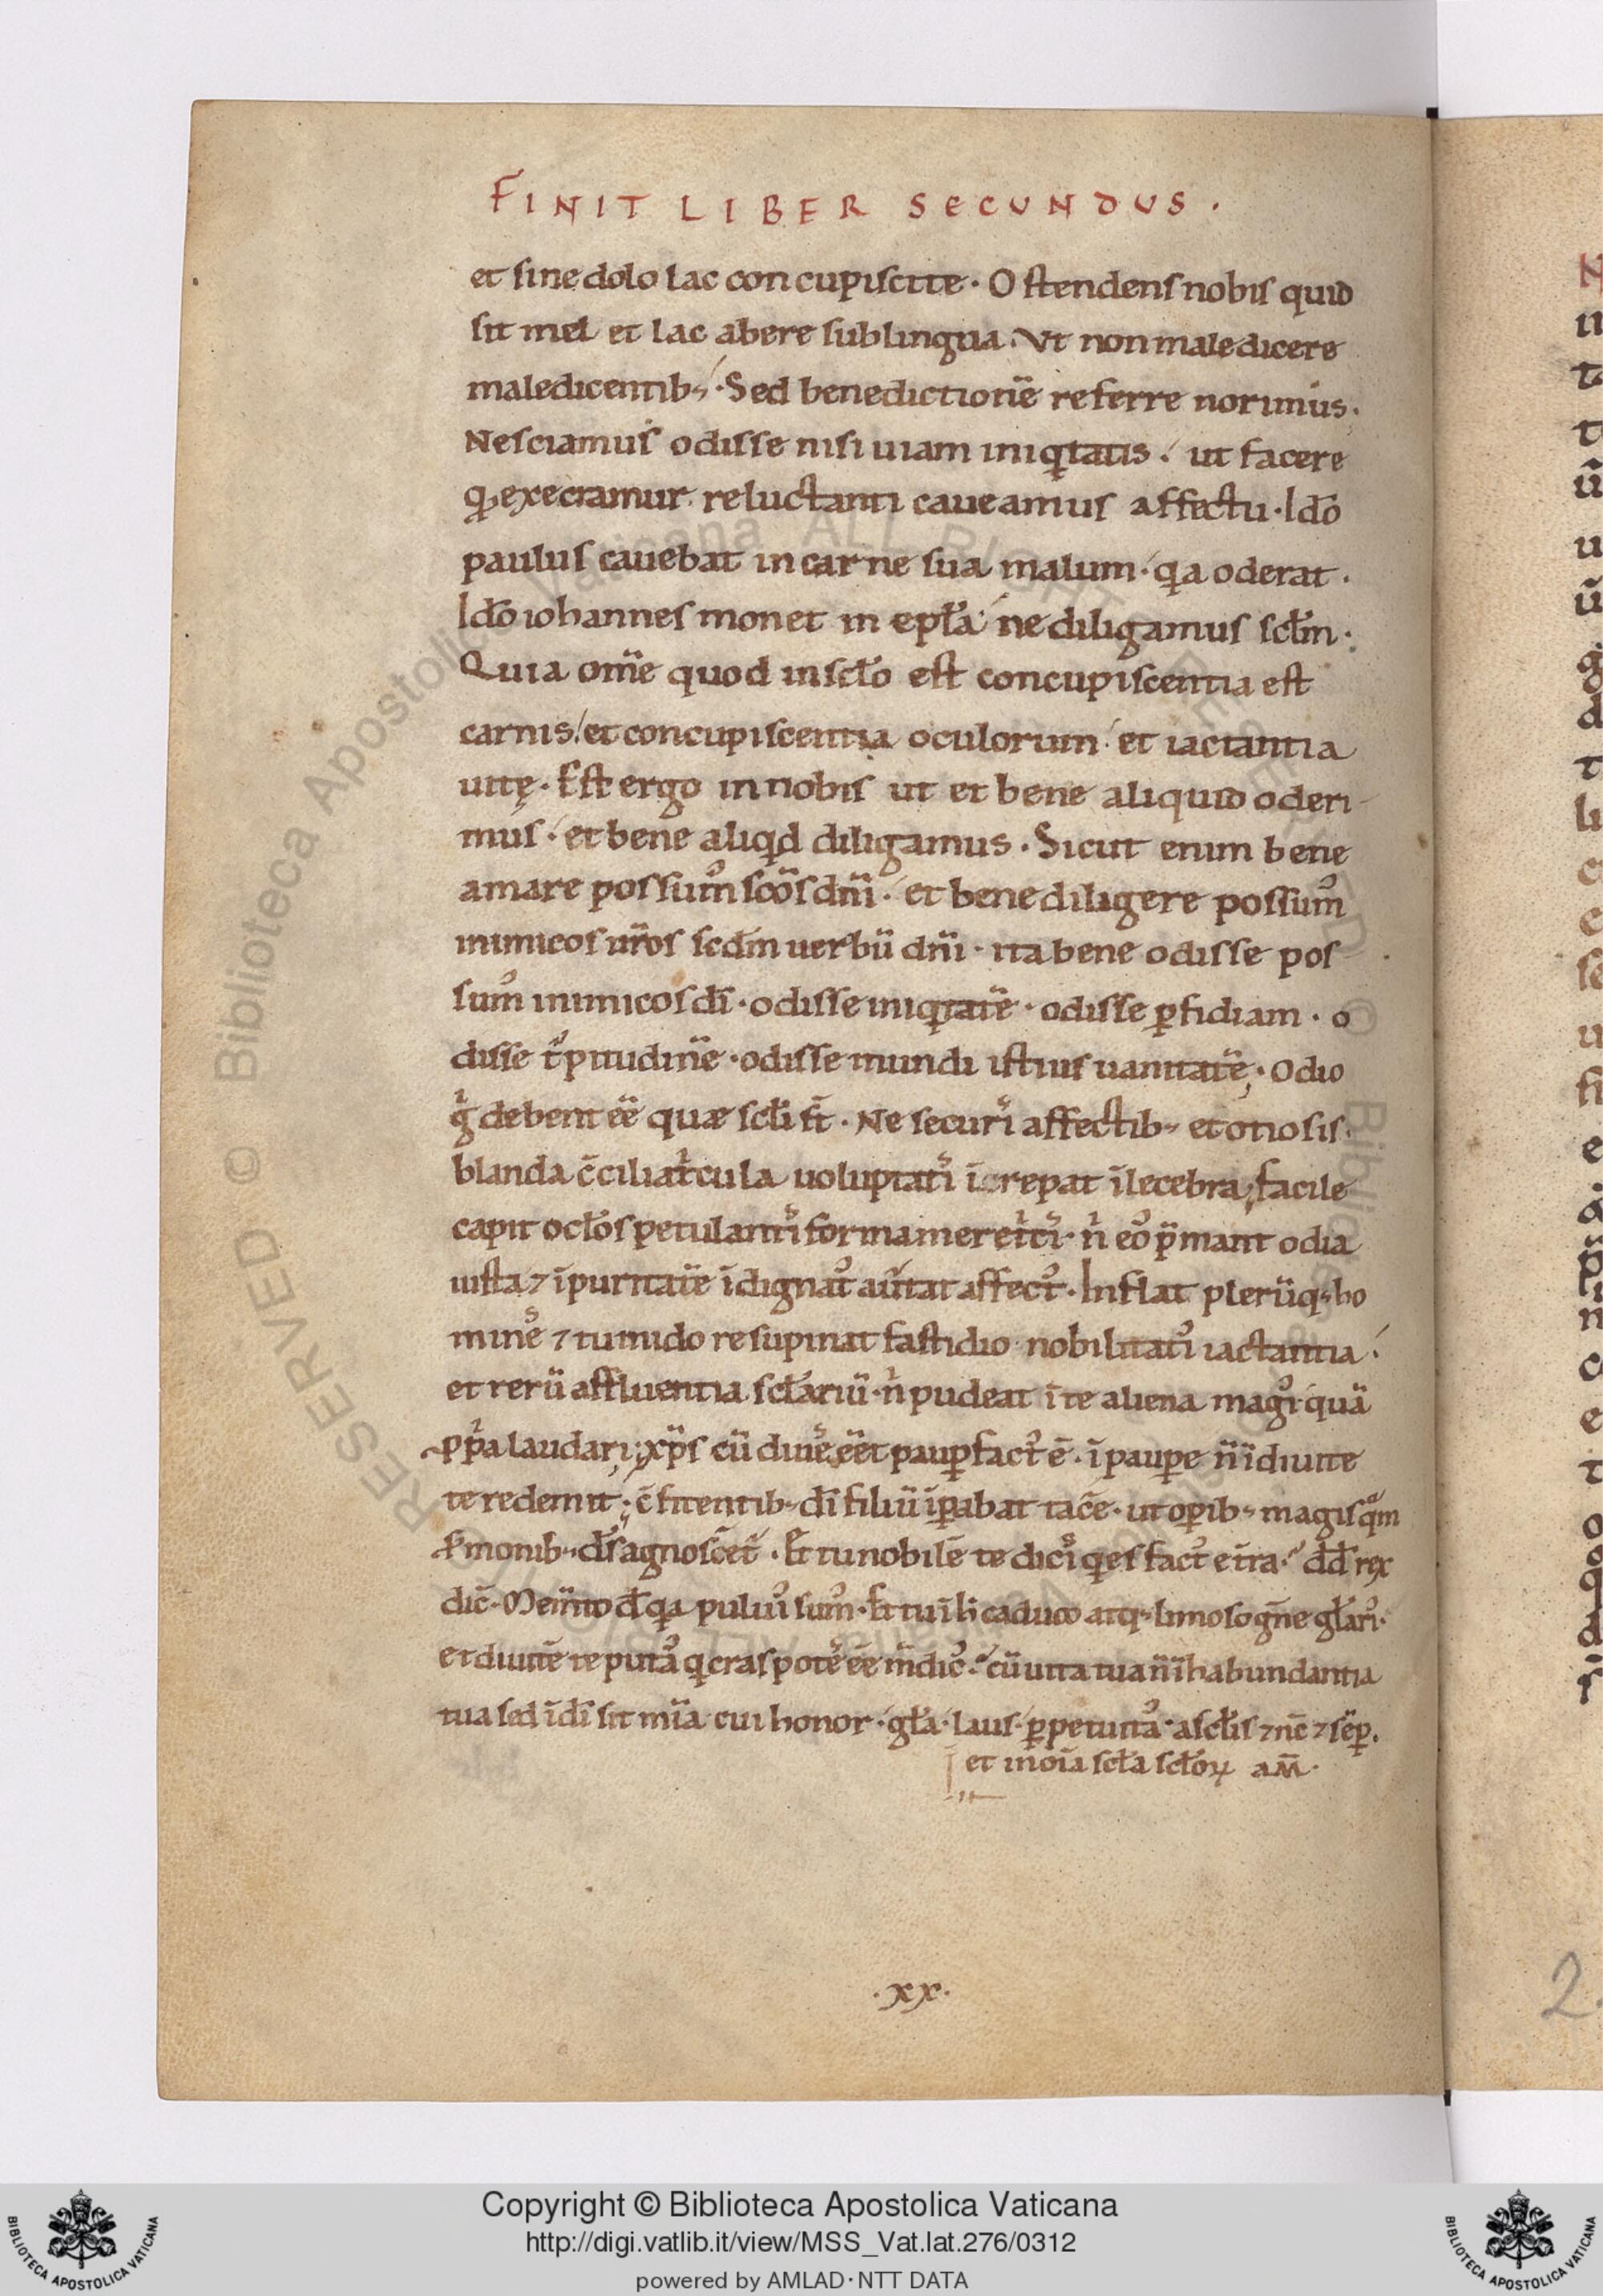 FINIT LIBER SECUNDUS.
et sine dolo lac concupiscite. Ostendens nobis quid
sit mel et lac abere sub lingua. Ut non maledicere
maledicentib; Sed benedictionē referre norimus.
Nesciamus odisse nisi uiam iniqͥtatis. ut facere
qđ execramur reluctanti caueamus affectu. Idō
paulus cauebat in carne sua malum. qͥa oderat.
Idō iohannes monet in epłā ne diligamus scłm.
Quia om̄e quod in scło est concupiscentia est
carnis. et concupiscentia oculorum. et iactantia
uitę. Est ergo in nobis ut et bene aliquid oderi-
mus. et bene aliqͥd diligamus. Sicut enim bene
amare possum᾽ scōs dn̄i. et bene diligere possum᾽
inimicos nr̄os scdm uerbū dn̄i. ita bene odisse pos
sum᾽ inimicos dī. odisse iniqͥtatē. odisse ꝑfidiam. o
disse tᷣpitudinē. odisse mundi istius uanitatē. Odio
gͥ debent eē quæ scłi st̄. Ne securi᾽ affectib; et otiosis.
blanda c̄ciliatͥcula uoluptati᾽ īcrepat īlecebra; facile
capit ocłos petulanti᾽ forma meretͥci᾽. nͥ eo᾽ p̄mant odia
iusta ⁊ īpuritatē īdignat᾽ au᾽tat affect᾽. Inflat plerūq; ho
mine᾽ ⁊ tumido resupinat fastidio nobilitati᾽ iactantia.
et rerū affluentia scłariū. nͥ pudeat ī te aliena magi᾽ quā
ppͥa laudari; xp̄s cū diue᾽ eēt pauꝑ fact᾽ ē. ī pauꝑe n̄ ī diuite
te redemit; c̄fitentib; dī filiū īꝑabat tacē. ut oꝑib; magis qᷓm
sᷣmonib; ds̄ agnoscēet᷑. Et tu nobilē te dici᾽ qͥ es fact᾽ e tr̄a. dd̄ rex
dic̄. Mem̄to đ qͥa pului᾽ sum᾽. Et tu ī h caduco atq; limoso gn̄e głari᾽.
et diuitē te puta᾽ qͥ cras pote᾽ eē m̄dic᾽. cū uita tua n̄ ī habundantia
tua sed ī dī sit mīa cui honor. gła. laus. ꝑpetuita᾽. a scłis ⁊ nc̄ ⁊ sēꝑ.
et in oīa scła scłoꝝ am̄.
.xx.
2
Copyright © Biblioteca Apostolica Vaticana
http://digi.vatlib.it/view/MSS_Vat.lat.276/0312
powered by AMLAD·NTT DATA
BIBLIOTECA APOSTOLICA VATICANA
BIBLIOTECA APOSTOLICA VATICANA